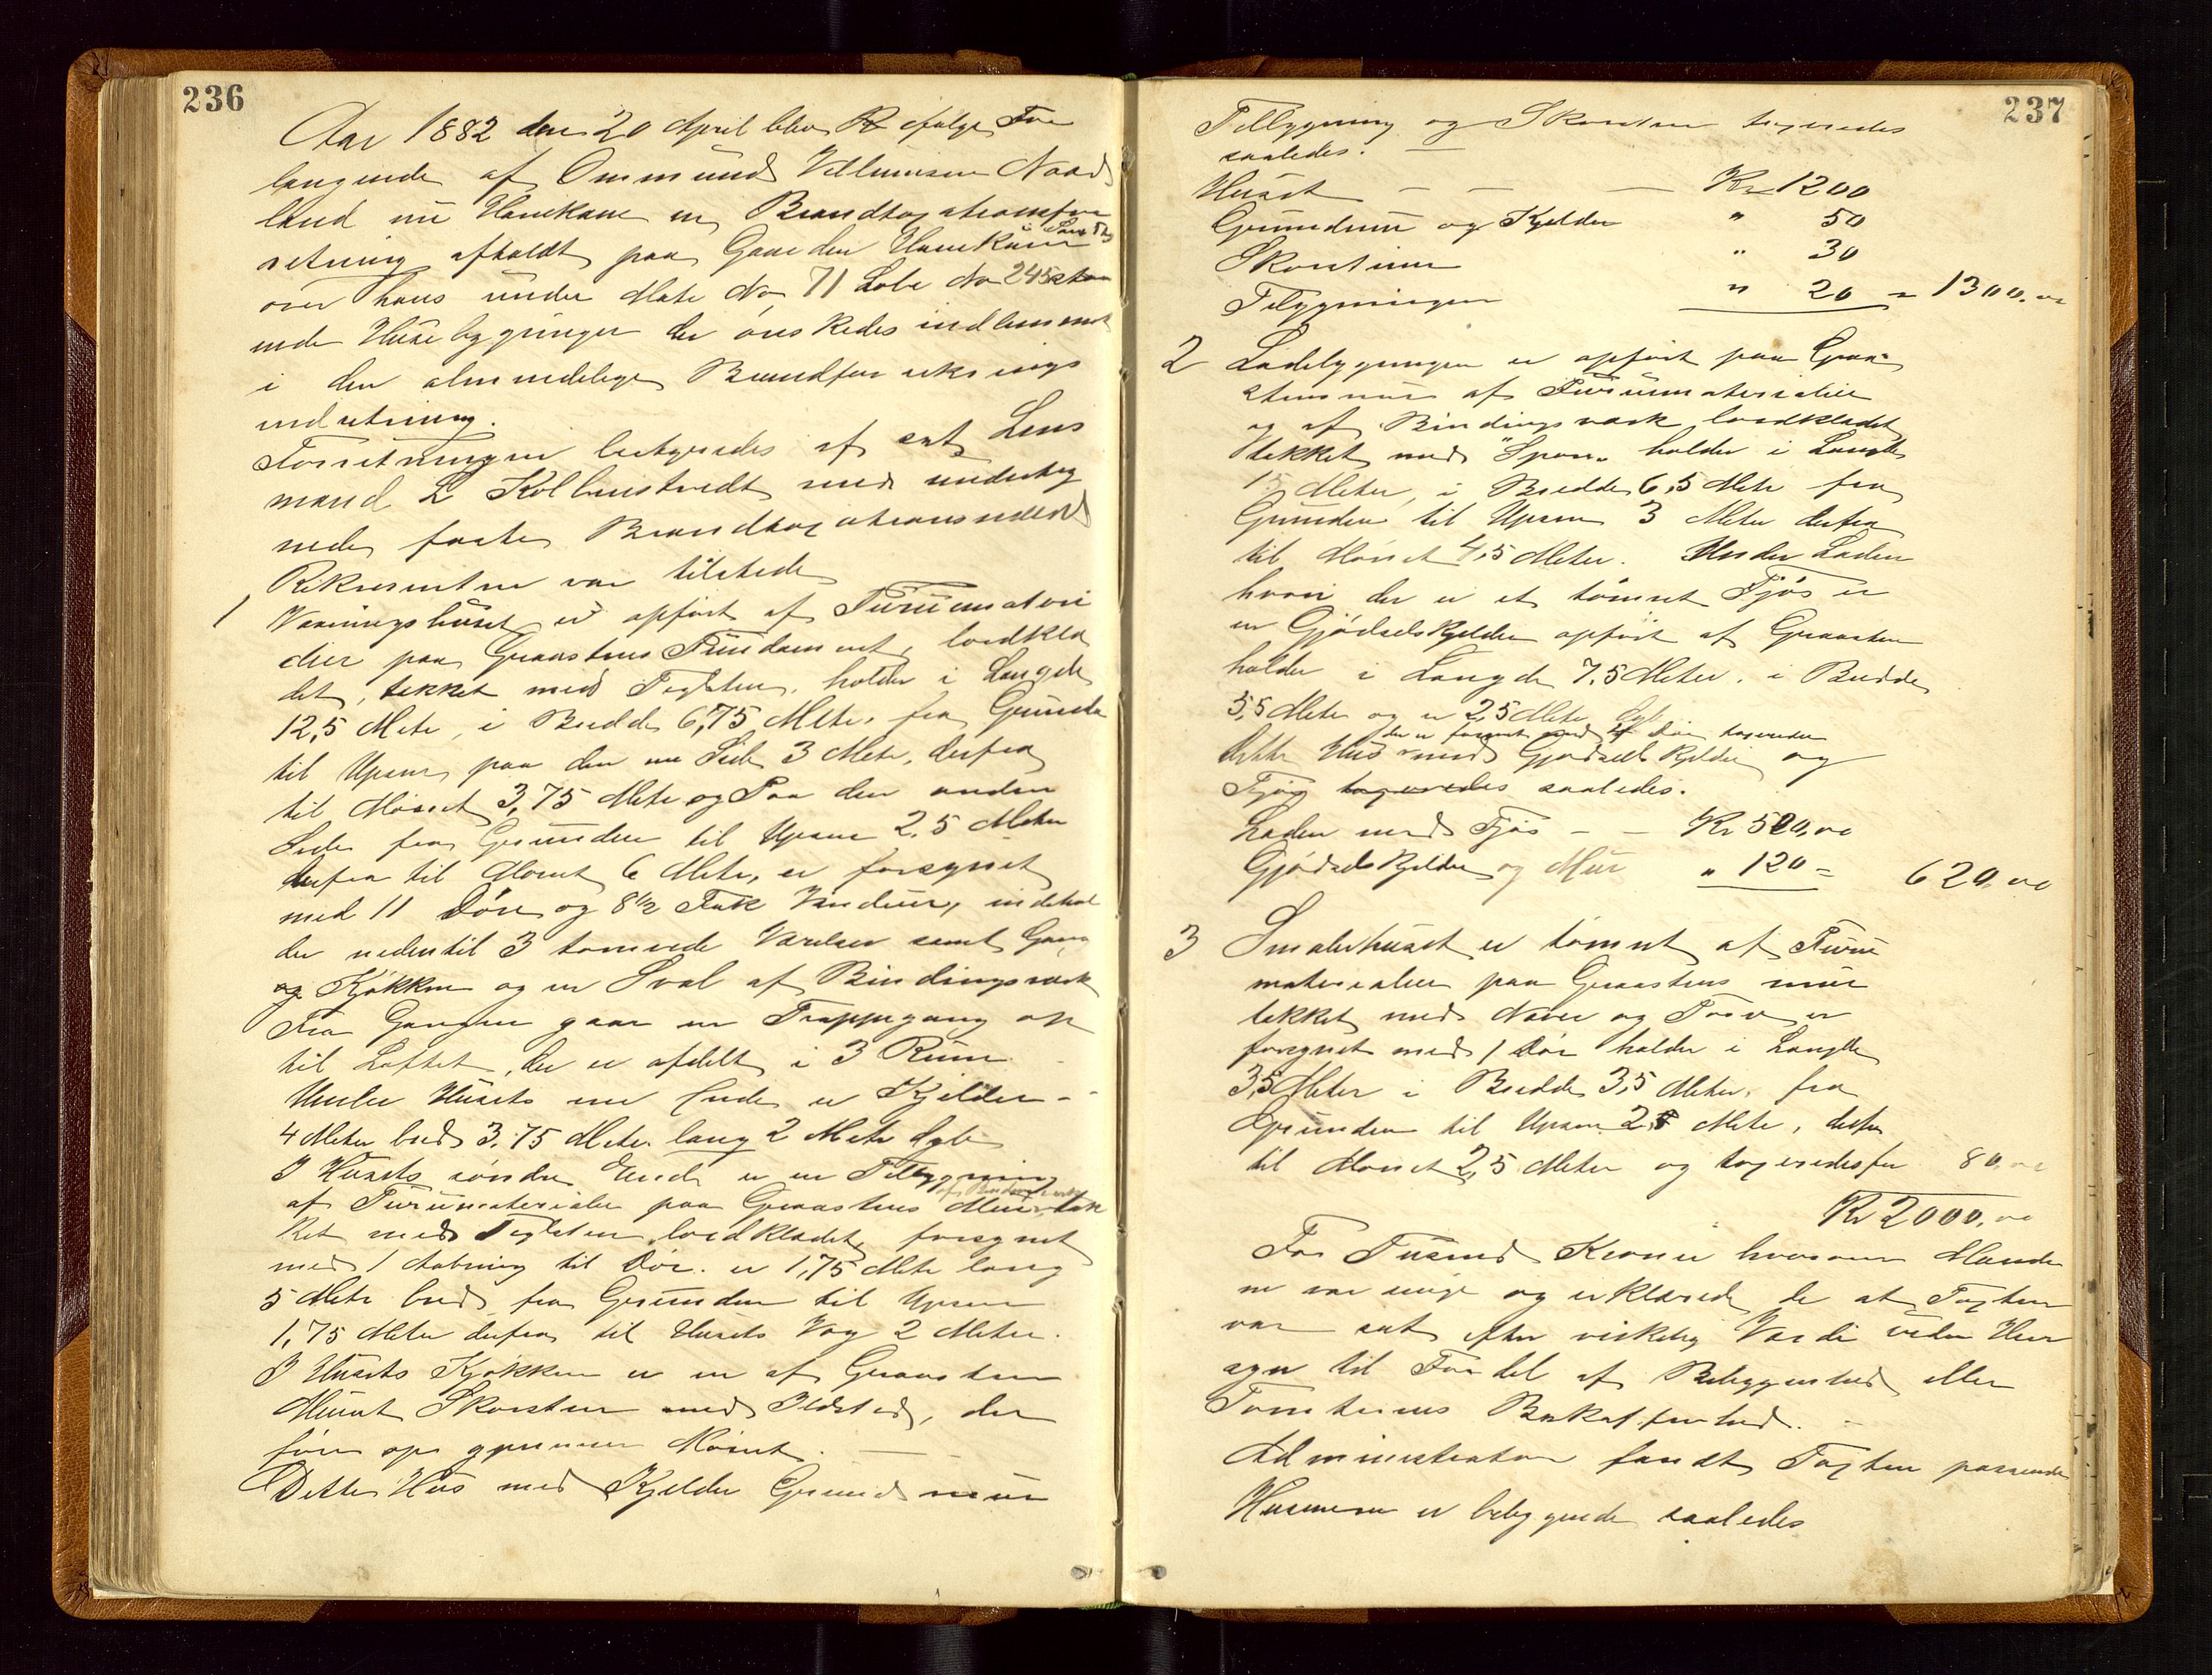 236
Aar 1882 den 20 April blev ifølge For
langende af Ommund Villumsen Nord
land nu Hanekam en Brandtaxationsfor
retning afholdt paa Gaarden Hanekam
over hans under Matr No 71 Løbe No 245 staa
ende Husebygninger der ønskedes indlemmet
i den almindelige Brandforsikrings
indretning.
Forretningen bestyredes af cst Lens
mand L Kolbenstvedt med underteg
nede faste Brandtaxationsmænd
Rekvirenten var tilstede
1 Vaaningshuset er opført af Furumateri
alier paa Graastens Fundament, bordklæ
det, tækket med Teglsten, holder i Længde
12,5 Meter, i Bredde 6,75 Meter, fra Grunde
til Upsen paa den ene Side 3 Meter, derfra
til Mønet 3,75 Meter og Paa den anden
Side fra Grunden til Upsen 2,5 Meter
derfra til Mønet 6 Meter, er forsynet
med 11 Døre og 8 1/2 Fak Vinduer, indehol
der nedentil 3 tømrede Værelser samt Gang
og Køkken og en Sval af Bindingsværk
Fra Gangen gaar en Trappegang op
til Loftet, der er afdelt i 3 Rum
Under Husets ene Ende er Kjelder -
4 Meter bred 3,75 Meter lang 2 Meter dyb
I Husets søndre Ende er en Tilbygning
af Bindingsværk
af Furumaterialier paa Graastens Mur, tæk
ket med Teglsten, bordklædet, forsynet
med 1 Aabning til Dør. er 1,75 Meter lang
5 Meter bred fra Grunden til Upsen
1,75 Meter derfra til Husets Væg 2 Meter.
I Husets Kjøkken er en af Graasten
Muret Skorsten med Ildsted, der
fører op gjennem Mønet. —
Dette Hus med Kjelder Grundmur
237
Tilbygning og Skorsten taxeredes
saaledes: —
Huset — — — Kr 1200
Grundmur og Kjelder " 50
Skorstenen " 30
Tilbygningen " 20 = 1300,00
2 Ladebygningen er opført paa Graa-
stensmur af Furumaterialier
og af Bindingsværk bordklædet
tækket med Spon. holder i Længde
15 Meter, i Bredde 6,5 Meter fra
Grunden til Upsen 3 Meter derfra
til Mønet 4,5 Meter. Under Laden
hvori der er et tømret Fjøs er
en Gjødselskjelder opført af Graasten
holder i Længde 7,5 Meter, i Bredde
5,5 Meter og er 2,5 Meter dyb
der er forsynet med Dør taxeredes
dette Hus med Gjødselskjelder og
Fjøs taxeredes saaledes.
Laden med Fjøs — — Kr 500,00
Gjødselskjelder og Mur " 120 = 620,00
3 Smalehuset er tømret af Furu
materialier paa Graastens mur
tækket med Næver og Torv er
forsynet med 1 Dør holder i Længde
3,5 Meter i Bredde 3,5 Meter, fra
Grunden til Upsen 2 Meter, derfra
til Mønet 2,5 Meter og taxeredes for 80,00
Kr 2000,00
To Tusend Kroner hvorom Mænde
ne var enige og erklærede de at Taxten
var sat efter virkelig Værdi uden Hen
syn til Fordel af Beliggenhed eller
Tomtens Beskaffenhed. —
Administrator fandt Taxten passende
Husene er beliggende saaledes